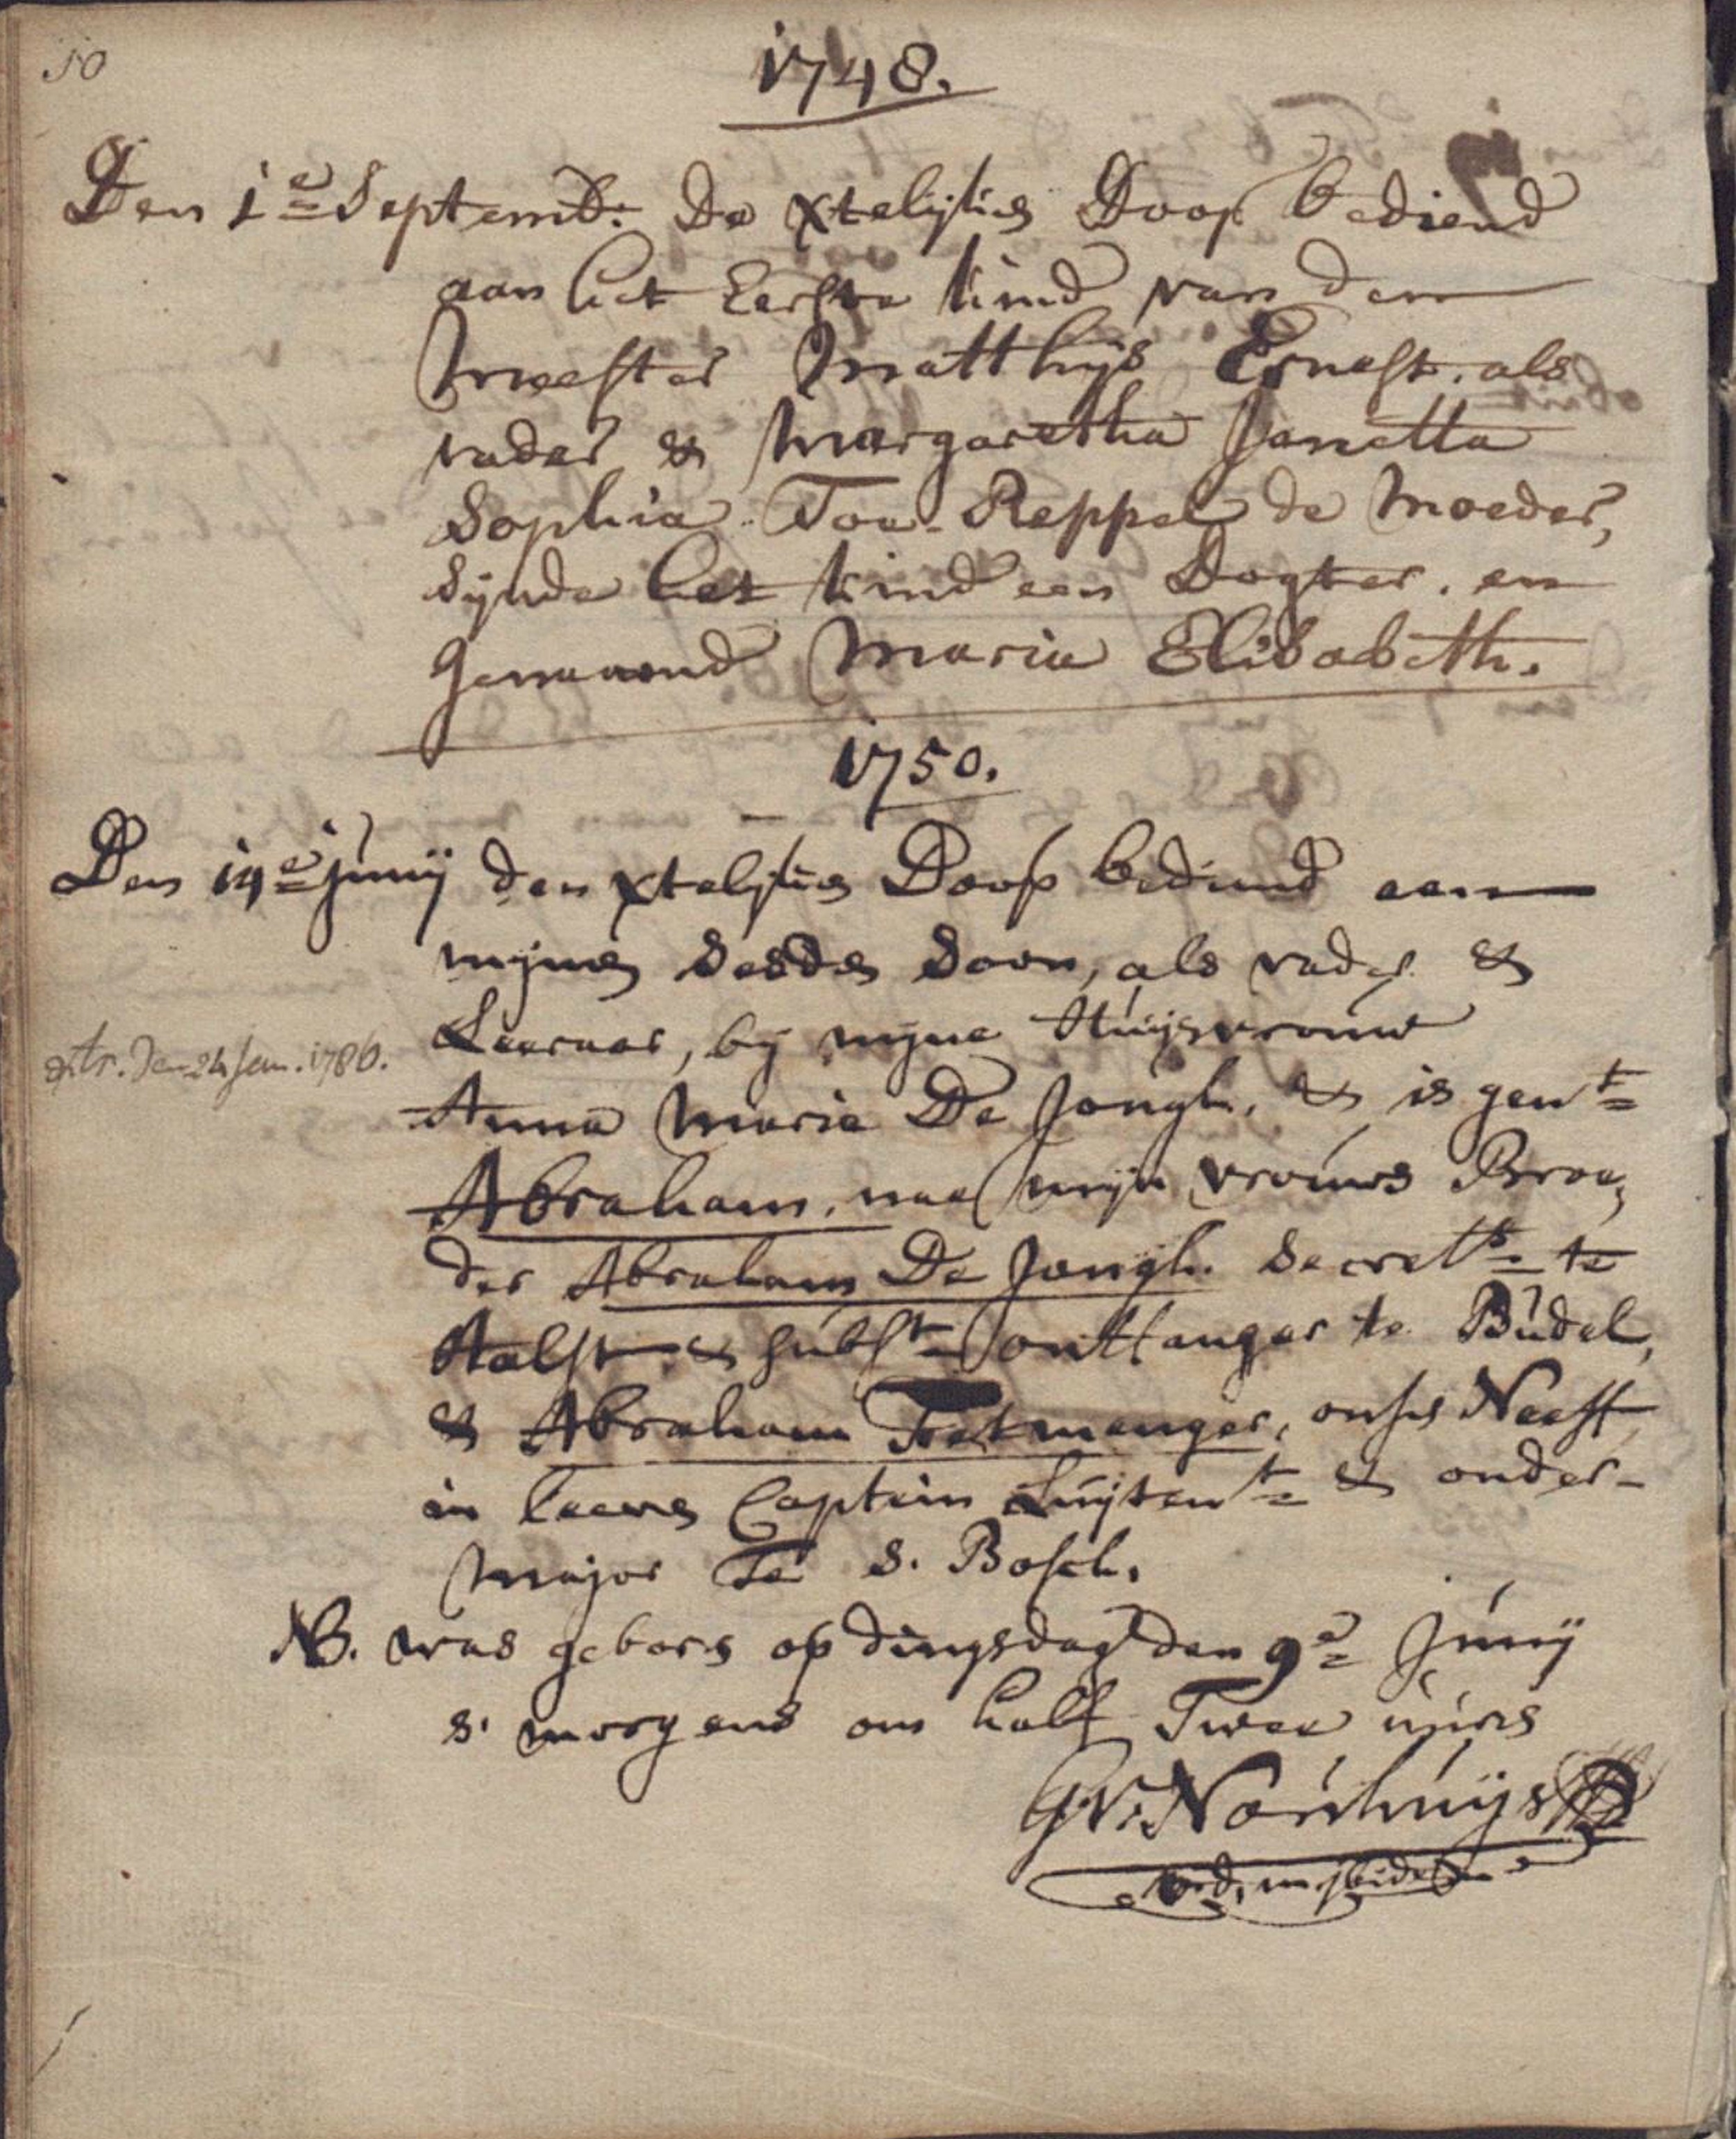 50
1748.
Den 1e Septemb: De Xtelijken Doop bediend
aan het Eerste kind van den
Meester Matthijs Ernest. als
vader & Margaretha Janetta
Sophia Toe-Reppel de Moeder,
Sijnde het kind een Dogter. en
Genaamd Maria Elisabeth.
1750.
Den 14e Junij den Xtelijken Doop bediend aan
mijnen Sesden Soon, als vader &
Leeraar, bij mijne Huijsvrouw
Den 24 Jan. 1786.
Anna Maria De Jongh, & is gent
Abraham, naa mijn vrouws Broe,
der Abraham De Jongh. Secrets te
Aalst & subst ontfanger te Budel,
& Abraham Tretmenger, onsen Neeff
in leeven Captein Luijtent & onder-
Major Te S. Bosch.
NB. was geboren op dingsdag den 9e Junij
s' morgens om half Twee uijres
G.V. Noorhuijs